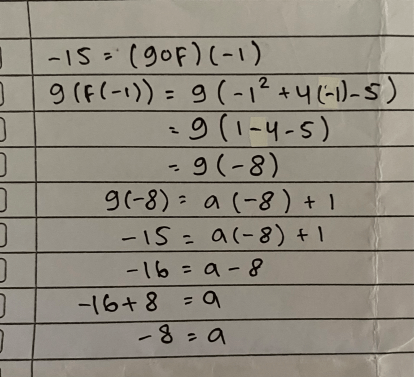 -15 = (gof)(-1)
g(f(-1)) = g(-1² + 4(-1)-5)
= g(1-4-5)
= g(-8)
g(-8) = a(-8) + 1
-15 = a(-8) + 1
-16 = a-8
-16+8 = a
-8 = a